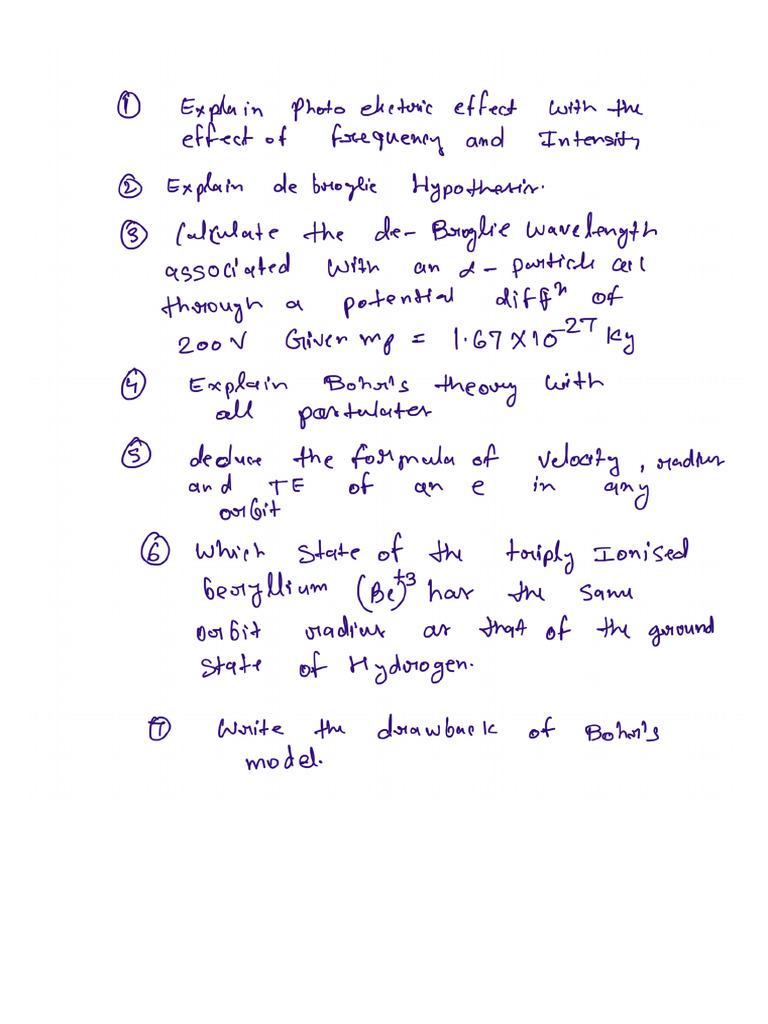 ① Explain Photo electoric effect with the
effect of frequency and Intensity
② Explain de broglie Hypothesis.
③ Calculate the de-Broglie wavelength
associated with an α-particle acc
through a potential diffⁿ of
200V Given mp = 1.67×10⁻²⁷ Kg
④ Explain Bohr's theory with
all postulates
⑤ deduce the formula of velocity, radius
and TE of an e in any
orbit
⑥ Which state of the triply Ionised
beryllium (Be)⁺³ has the same
orbit radius as that of the ground
state of Hydrogen.
⑦ Write the drawback of Bohr's
model.